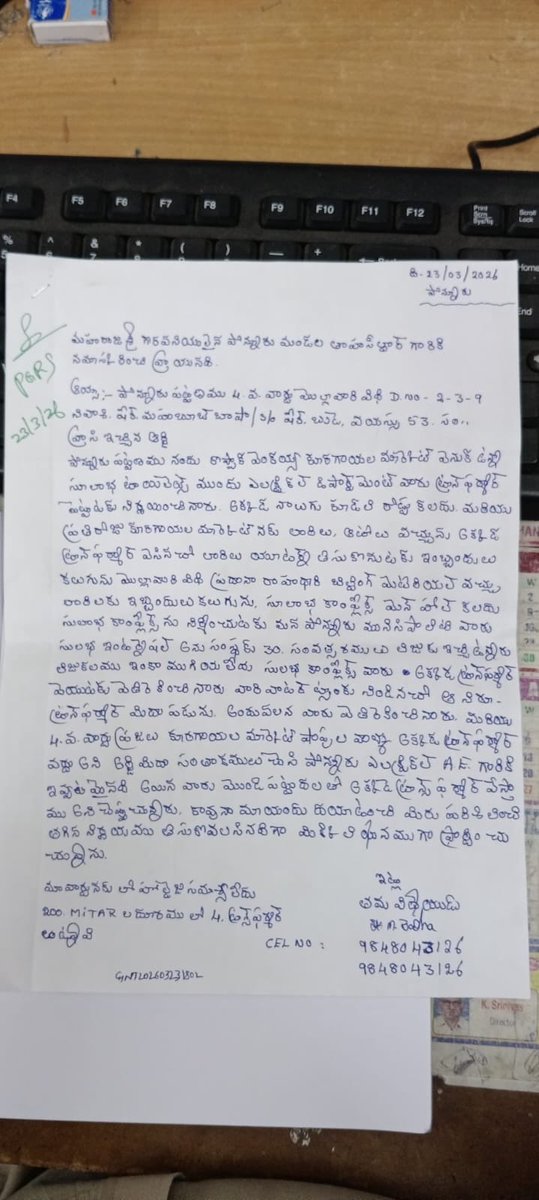 ది. 23/03/2026
పోన్నూరు
PGRS
23/3/26
మహరాజశ్రీ గౌరవనియులైన పోన్నూరు మండల తాహసీల్దార్ గారికి
నమస్కరించి వ్రాయునది.
అయ్యా :- పోన్నూరు పట్టణము 4. వ. వార్డు ముల్లావారి విధి D.no - 2-3-9
నివాశి. షేక్. మహబూబ్ బాషా / S/o షేక్. బుడే, వయస్సు 53. సం..
వ్రాసి ఇచ్చిన అర్జి
పోన్నూరు పట్టణము నందు కూరగాయల మార్కెట్ వెనుక ఉన్న
సూలాభ టాయిలెట్స్ ముందు ఎలక్ట్రికల్ డిపార్ట్ మెంట్ వారు ట్రాన్స్ ఫార్మర్
పెట్టుటకు నిశ్చయించినారు. అక్కడ నాలుగు కూడలి రోడ్లు కలదు. మరియు
ప్రతిరోజు కూరగాయల మార్కెట్ నకు లారిలు, ఆటోలు వచ్చును అక్కడ
ట్రాన్స్ ఫార్మర్ వేసినచో లారిలు యూటర్న్ తిసుకొనుటకు ఇబ్బందులు
కలుగును ముల్లావారి విధి ప్రధాన రాహధారి బిల్డింగ్ మెటిరియల్ వచ్చు
లారిలకు ఇబ్బందులు కలుగును, సూలాభ కాంప్లెక్స్ మెన్ హోల్ కలదు
సులాభ కాంప్లెక్స్ ను నిర్మించుటకు మన పోన్నూరు మునిసిపాలిటి వారు
సులభ ఇంటర్నేషనల్ అను సంస్థకు 30. సంవత్సరములు లిజుకు ఇచ్చి ఉన్నారు
లిజుకలము ఇంకా ముగియ లేదు సులభ కాంప్లెక్స్ వారు అక్కడ ట్రాన్స్ ఫార్మర్
వెయుటకు వెతిరెకించినారు వారి వాటర్ ట్యాంకు నిండినచో ఆ నిరు
ట్రాన్స్ ఫార్మర్ మిదా పడును. అందువలన వారు వెతిరెకించినారు. మరియు
4. వ. వార్డు ప్రజలు కూరగాయల మార్కెట్ షాపుల వాళ్ళు అక్కడ ట్రాన్స్ ఫార్మర్
వద్దు అని అర్జి మిదా సంతాకములు చెసి పోన్నూరు ఎలక్ట్రికల్ A.E. గారికి
ఇవ్వటమైనది అయిన వారు మొండి పట్టుదలతో అక్కడే ట్రాన్స్ ఫార్మర్ వేస్తా
ము అని చెప్పుచున్నారు. కావునా మాయందు దయాఉంచి మిరు పరిశిలించి
తగిన నిర్ణయము తిసుకోవలసినదిగా మికు ఘనముగా ప్రార్థించు
చున్నాను.
మా వార్డునకు లో హొల్టెజి సమస్య లేదు
200. MITAR ల దూరము లో 4. ట్రాన్స్ ఫార్మర్
లు ఉన్నావి
ఇట్లు
తమ విధేయుడు
CEL NO : 9848043126
9848043126
GNT202603231802
K. Srinivas
Director